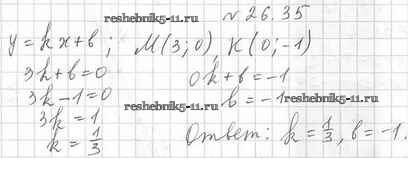 № 26.35
reshebnik5-11.ru
y = kx + b; M(3; 0), K(0; -1)
3k + b = 0
0k + b = -1
3k - 1 = 0
b = -1
reshebnik5-11.ru
reshebnik5-11.ru
3k = 1
k = 1/3
Ответ: k = 1/3, b = -1.
reshebnik5-11.ru